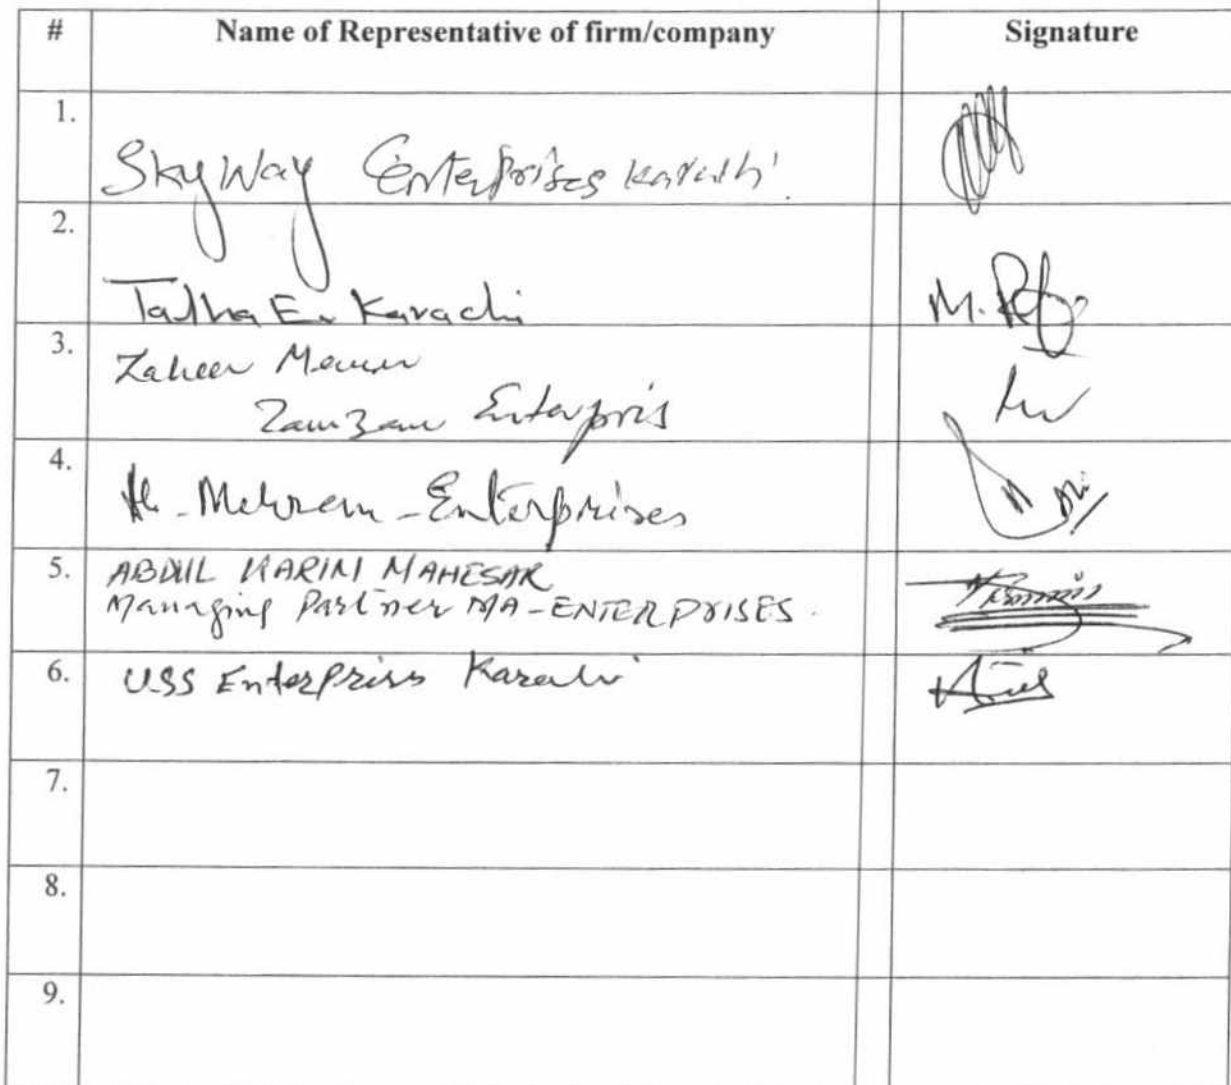 # Name of Representative of firm/company Signature
1. Sky Way Enterprises Karachi.
2. Talha E. Karachi M.
3. Zaheer Memon
Zamzam Enterpris
4. Al-Mehran-Enterprises
5. ABDUL KARIM MAHESAR
Managing Partner MA-ENTERPRISES.
6. USS Enterpriss Karachi
7.
8.
9.